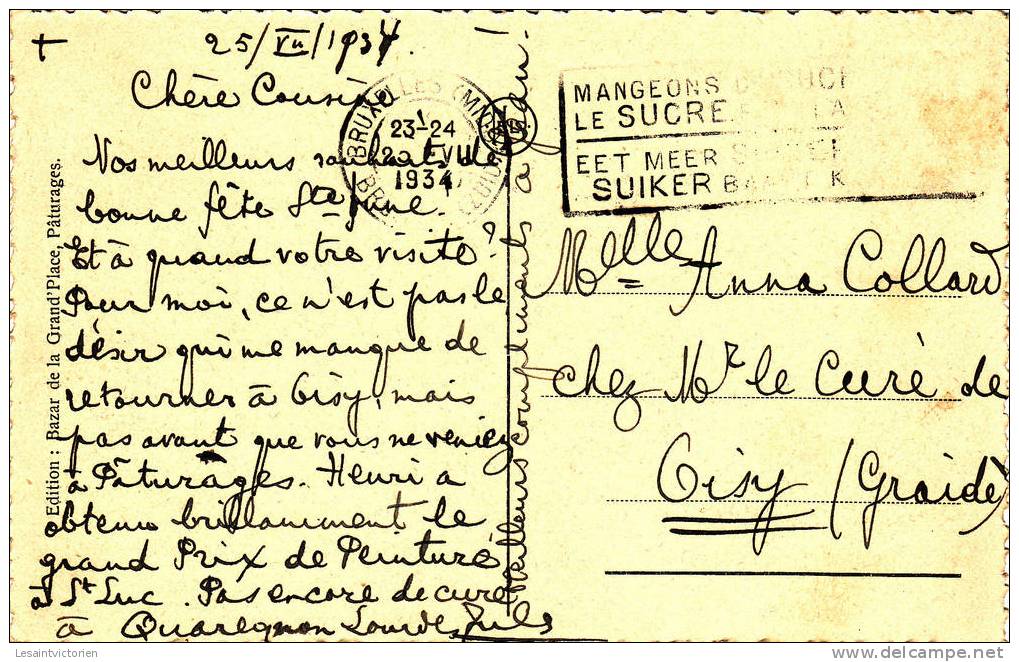 + 25/VII/1934
Chère Cousine
Nos meilleurs souhaits de
bonne fête Ste Anne.
Et à quand votre visite?
Pour moi, ce n'est pas le
désir qui me manque de
retourner à Oisy, mais
pas avant que vous ne veniez
à Pâturages. Henri a
obtenu brillamment le
grand Prix de Peinture
à St Luc. Pas encore de curé
à Quaregnon Lourdes. Jules
Meilleurs compliments à
Edition : Bazar de la Grand'Place, Pâturages.
BRUXELLES (MIDI)
23-24
VII
1934
MANGEONS
LE SUCRE LA
EET MEER
SUIKER
Melle Anna Collard
chez Mr le Curé de
Oisy (Graide)
Lesaintvictorien
www.delcampe.net